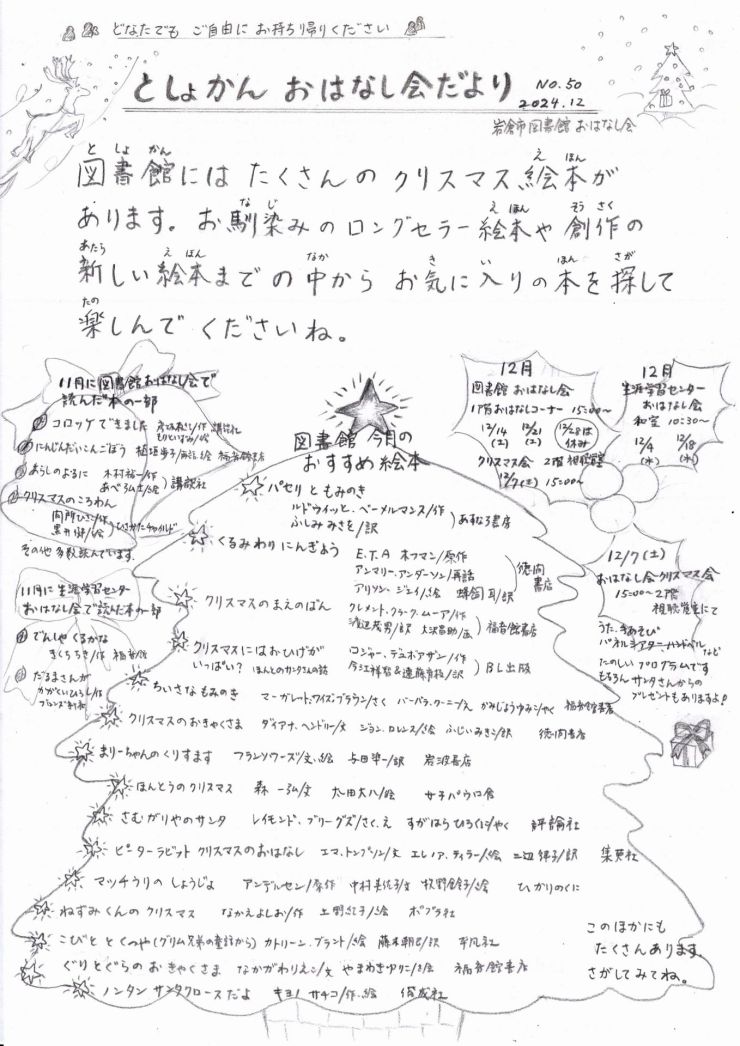 どなたでも ご自由に お持ち帰りください
としょかん おはなし会だより
NO.50
2024.12
岩倉市図書館 おはなし会
図書館には たくさんの クリスマス絵本が
あります。お馴染みの ロングセラー絵本や 創作の
新しい絵本までの 中から お気に入りの本を探して
楽しんで くださいね。
11月に図書館おはなし会で
読んだ本の一部
コロッケできました
講談社
にんじんだいこんごぼう 植垣歩子/再話 絵 福音館書店
あらしのよるに 木村裕一/作
あべ弘士/絵 ) 講談社
クリスマスのころわん
間所ひさこ/作
黒井 健/絵 ) ひさかたチャイルド
その他 多数読んでいます。
11月に 生涯学習センター
おはなし会で読んだ本の一部
でんしゃ くるかな
きくちちき/作 福音館
だるまさんが
かがくいひろし/作
ブロンズ新社
12月
図書館 おはなし会
1階おはなしコーナー 15:00〜
12/14 (土) 12/21 (土) 12/28は休み
クリスマス会 2階 視聴覚室
12/7(土) 15:00〜
12月
生涯学習センター
おはなし会
和室 10:30〜
12/4 (水) 12/18 (水)
12/7(土)
おはなし会クリスマス会
15:00〜2階
視聴覚室にて
うた、手あそび
パネルシアター・ハンドベル など
たのしい プログラムです
もちろん サンタさんからの
プレゼントもありますよ!
図書館 今月の
おすすめ絵本
パセリ ともみのき
ルドウィッヒ・ベーメルマンス/作
ふしみ みさを/訳 ) あすなろ書房
くるみわり にんぎょう
E.T.A ホフマン/原作
アンマリー・アンダーソン/再話
アリソン・ジェイ/絵 蜂飼 耳/訳 ) 徳間書店
クリスマスのまえのばん
クレメント・クラーク・ムーア/作
渡辺茂男/訳 大沢昌助/画 ) 福音館書店
クリスマスにはおひげが
いっぱい? ほんとのサンタさんの話
ロジャー・デュボアザン/作
今江祥智&遠藤育枝/訳 ) BL出版
ちいさな もみのき マーガレット・ワイズ・ブラウン/さく バーバラ・クーニー/え かみじょうゆみこ/やく 福音館書店
クリスマスのおきゃくさま ダイアナ・ヘンドリー/文 ジョン・ロレンス/絵 ふじいみきこ/訳 徳間書店
まりーちゃんのくりすます フランソワーズ/文・絵 与田準一/訳 岩波書店
ほんとうのクリスマス 森 一弘/文 太田大八/絵 女子パウロ会
さむがりやのサンタ レイモンド・ブリーグズ/さく・え すがはらひろくに/やく 評論社
ピーターラビット クリスマスのおはなし エマ・トンプソン/文 エレノア・テイラー/絵 三辺 律子/訳 集英社
マッチうりの しょうじょ アンデルセン/原作 中村美佐子/文 牧野鈴子/絵 ひかりのくに
ねずみくんの クリスマス なかえよしお/作 上野紀子/絵 ポプラ社
こびとと くつや(グリム兄弟の童話から) カトリーン・ブラント/絵 藤本朝巳/訳 平凡社
ぐりとぐらの おきゃくさま なかがわりえこ/文 やまわきゆりこ/絵 福音館書店
ノンタン サンタクロースだよ キヨノ サチコ/作・絵 偕成社
このほかにも
たくさんあります。
さがしてみてね。